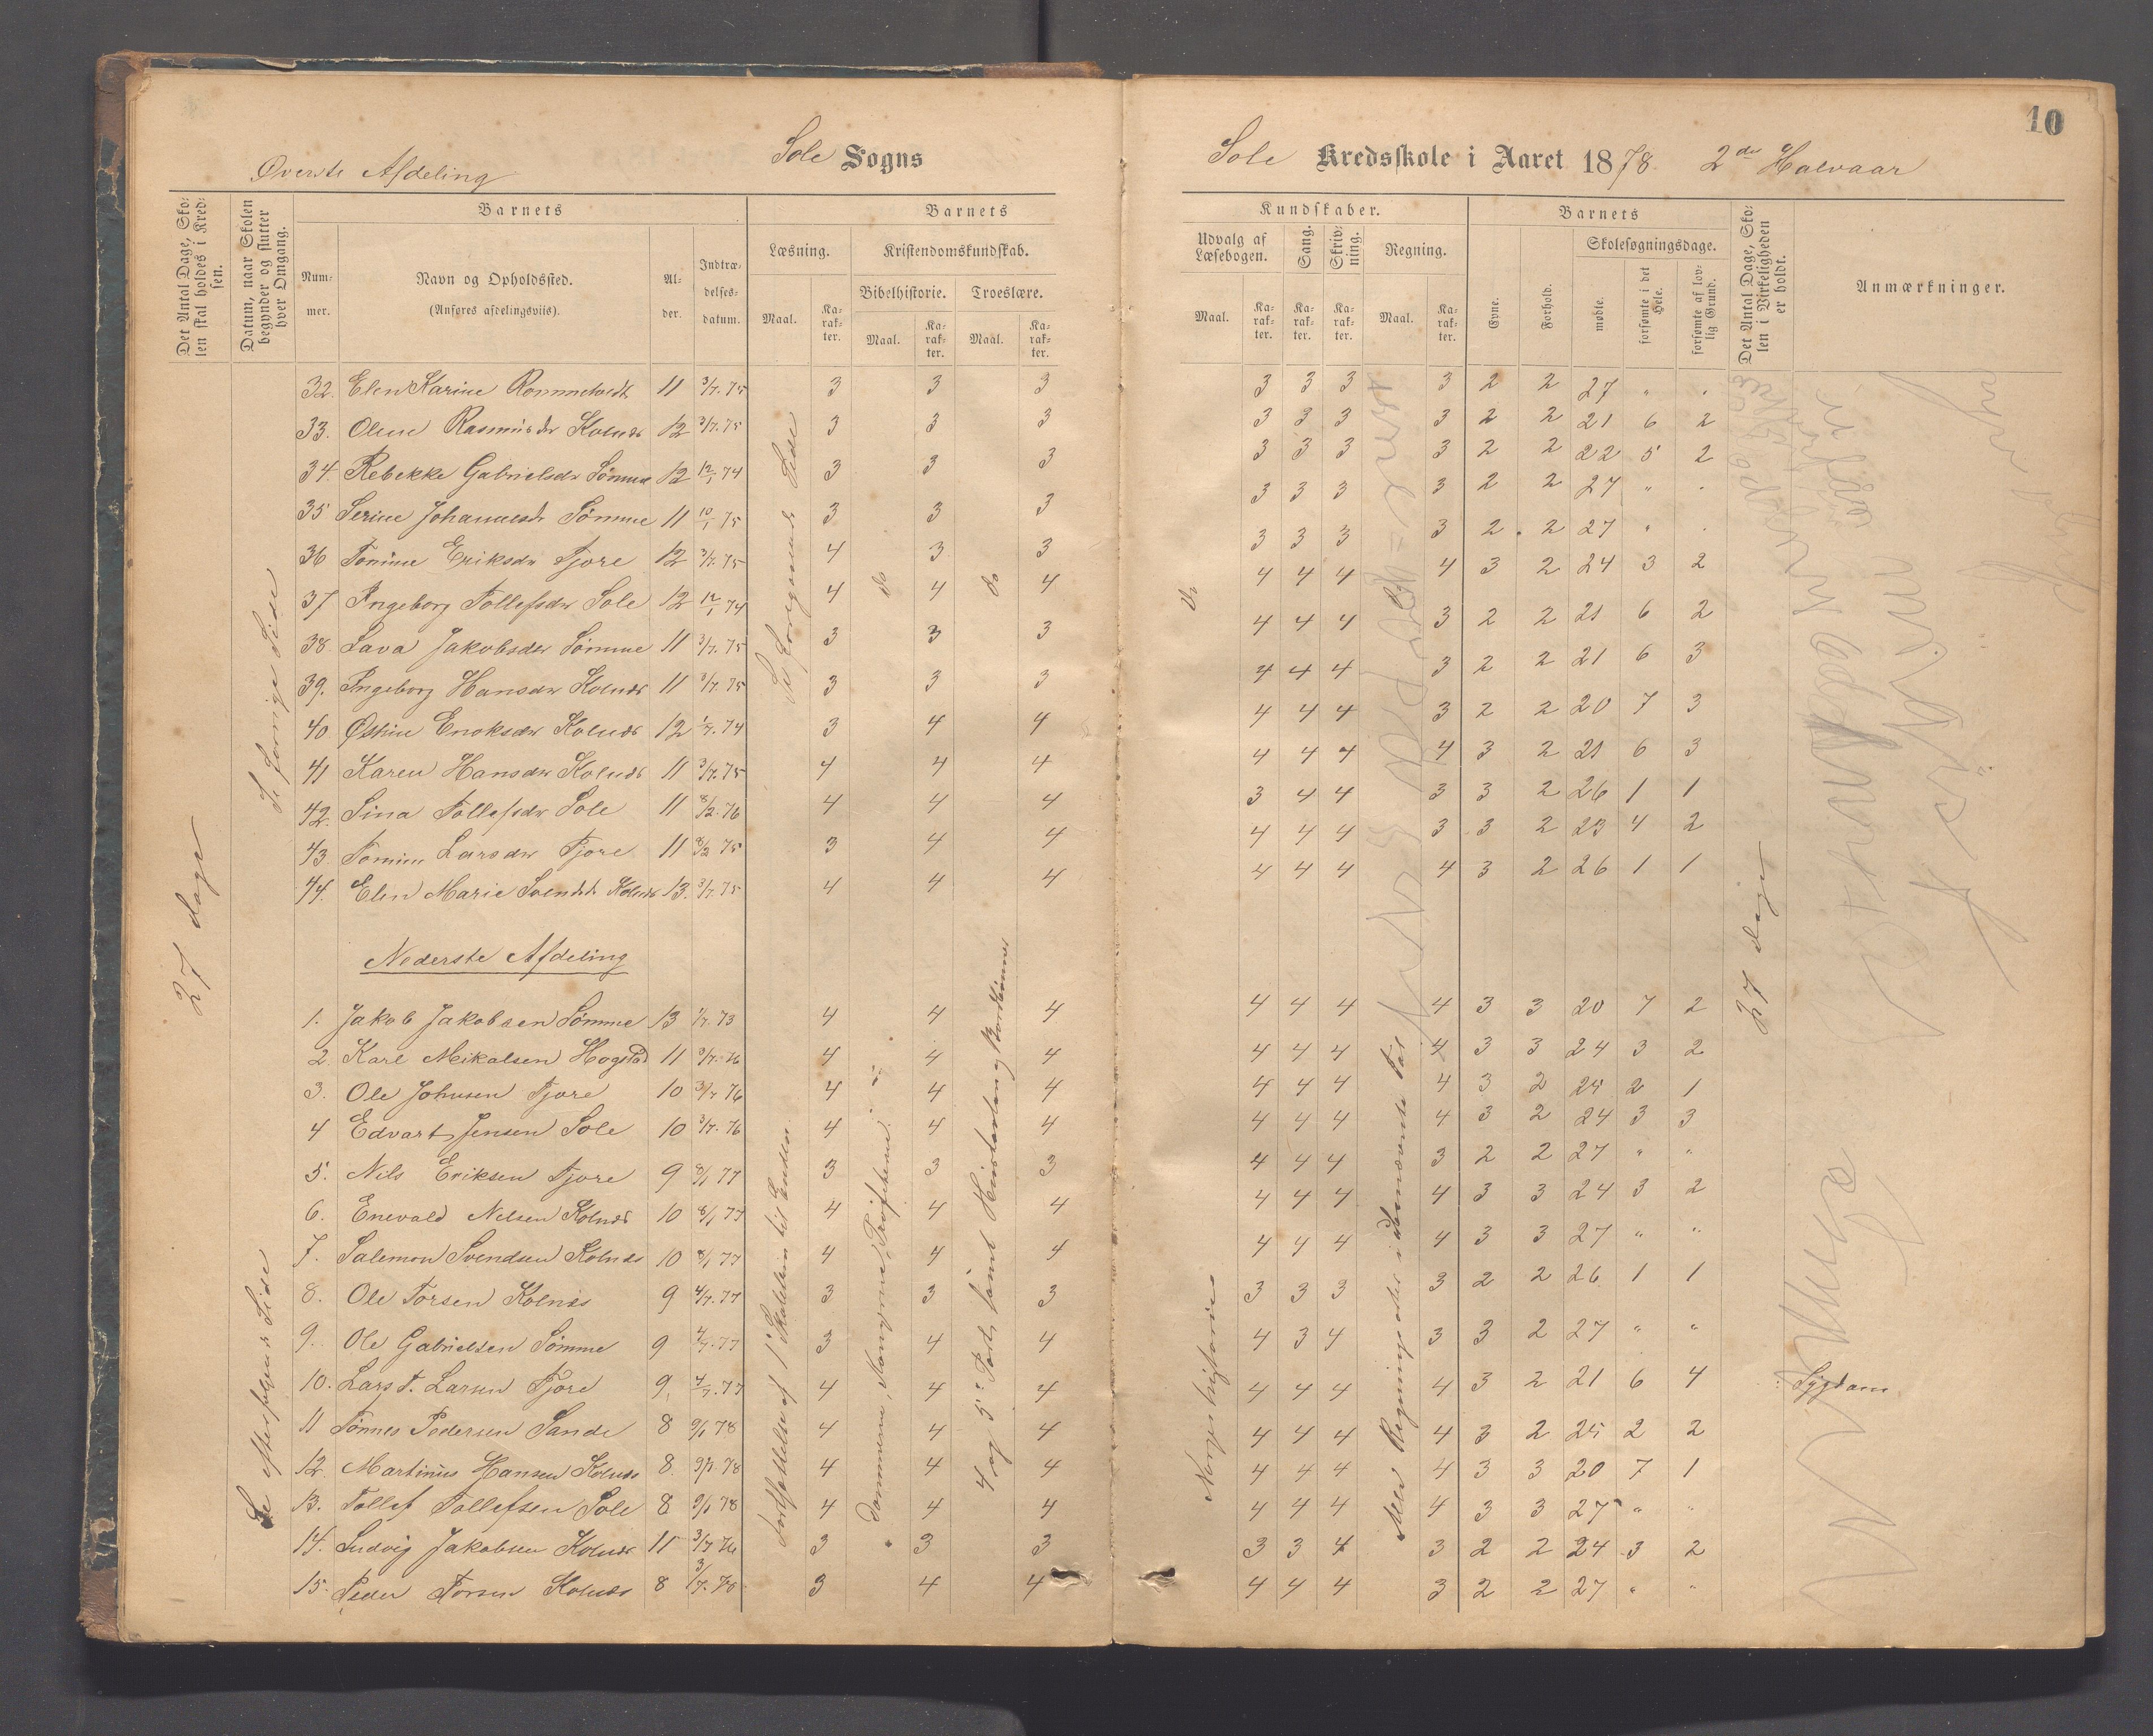 10
Øverste Afdeling Sole Sogns Sole Kredsskole i Aaret 1878. 2det Halvaar
Det Antal Dage, Skolen skal holdes i Kredsen.
Datum, naar Skolen begynder og slutter hver Omgang.
Barnets
Nummer.
Navn og Opholdssted.
(Anføres afdelingsviis).
Alder.
Indtrædelsesdatum.
Barnets Kundskaber.
Læsning. Kristendomskundskab.
Bibelhistorie. Troeslære.
Maal. Karakter. Maal. Karakter. Maal. Karakter.
Udvalg af Læsebogen. Sang. Skrivning. Regning.
Maal. Karakter. Karakter. Karakter. Maal. Karakter.
Barnets
Evne. Forhold. Skolesøgningsdage.
mødte. forsømte i det Hele. forsømte af lovlig Grund.
Det Antal Dage, Skolen i Virkeligheden er holdt.
Anmærkninger.
32. Elen Karine 11 3/7. 75 3 3 3 3 3 3 3 2 2 27 " "
33. Oline Rasmusdr Kolnes 12 3/7. 75 3 3 3 3 3 3 3 2 2 21 6 2
34. Rebekke Gabrielsdr Sömme 12 12/1 74 3 3 3 3 3 3 3 2 2 22 5 2
35 Serine Johannesdr Sömme 11 10/1 75 3 3 3 3 3 3 3 2 2 27 " "
36 Tomine Eriksdr Tjore 12 3/7. 75 4 3 3 3 3 3 3 2 2 27 " "
37 Ingeborg Tollefsdr Sole 12 12/1 74 4 4 4 4 4 4 4 3 2 24 3 2
38. Lava Jakobsdr Sömme 11 3/7. 75 3 3 3 4 4 4 3 2 2 21 6 2
39. Ingeborg Hansdr Kolnes 11 3/7. 75 3 3 3 4 4 4 3 2 2 21 6 3
40 Østine Enoksdr Kolnes 12 1/7. 74 3 4 4 4 4 4 3 2 2 20 7 3
41 Karen Hansdr Kolnes 11 3/7. 75 4 4 4 4 4 4 4 3 2 21 6 3
42. Sina Tollefsdr Sole 11 8/2. 76 4 4 4 3 4 4 3 3 2 26 1 1
43. Tomine Larsdr Tjore 11 8/2 75 3 4 4 4 4 4 3 3 2 23 4 2
44. Elen Marie Svendsdr Kolnes 13. 3/7. 75 4 4 4 4 4 4 4 3 2 26 1 1
Se forrige Side
Se foregaaende Side
do
do
Do
27 dage
27 dage
Nederste Afdeling
1. Jakob Jakobsen Sömme 13 1/7. 73 4 4 4 4 4 4 4 3 3 20 7 2
2. Karl Mikalsen Hogstad 11 3/7. 76 4 4 4 4 4 4 4 3 3 24 3 2
3. Ole Johnsen Tjore 10 3/7 76 4 4 4 4 4 4 4 3 2 25 2 1
4 Edvart Jensen Sole 10 3/7. 76 4 4 4 4 4 4 4 3 2 24 3 3
5. Nils Eriksen Tjore 9 8/1 77 3 3 3 4 4 4 3 2 2 27 " "
6. Enevald Nelsen Kolnes 10 8/1 77 4 4 4 4 4 4 4 3 3 24 3 2
7. Salemon Svendsen Kolnes 10 8/1 77 4 4 4 4 4 4 4 3 3 27 " "
8. Ole Torsen Kolnes 9 4/7. 77 3 3 3 3 3 3 3 2 2 26 1 1
9. Ole Gabrielsen Sömme 9 4/7. 77 3 4 4 4 3 4 3 3 2 27 " "
10. Lars T. Larsen Tjore 9. 4/7. 77 4 4 4 4 4 4 4 3 2 21 6 4 Sygdom
11 Tönnes Pedersen Sande 8 9/1 78 4 4 4 4 4 4 4 3 2 25 2 2
12. Martinius Hansen Kolnes 8. 9/1. 78 4 4 4 4 4 4 4 3 3 20 7 1
13. Tollef Tollefsen Sole 8 9/1 78 4 4 4 4 4 4 4 3 3 27 " "
14. Ludvig Jakobsen Kolnes 11 3/7 76 3 3 3 3 3 4 3 2 2 24 3 2
15. Peder Torsen Kolnes 8 3/7. 78 3 4 4 4 4 4 3 2 2 27 " "
Se efterfølgende Side
Fortsættelse af 1ste Skoletrin til Enden.
Dommerne, Kongerne, Profeterne og
4 og 5te Part, samt Husstanden
Norges historie
Alle Regningsarter i ubenævnte Tal